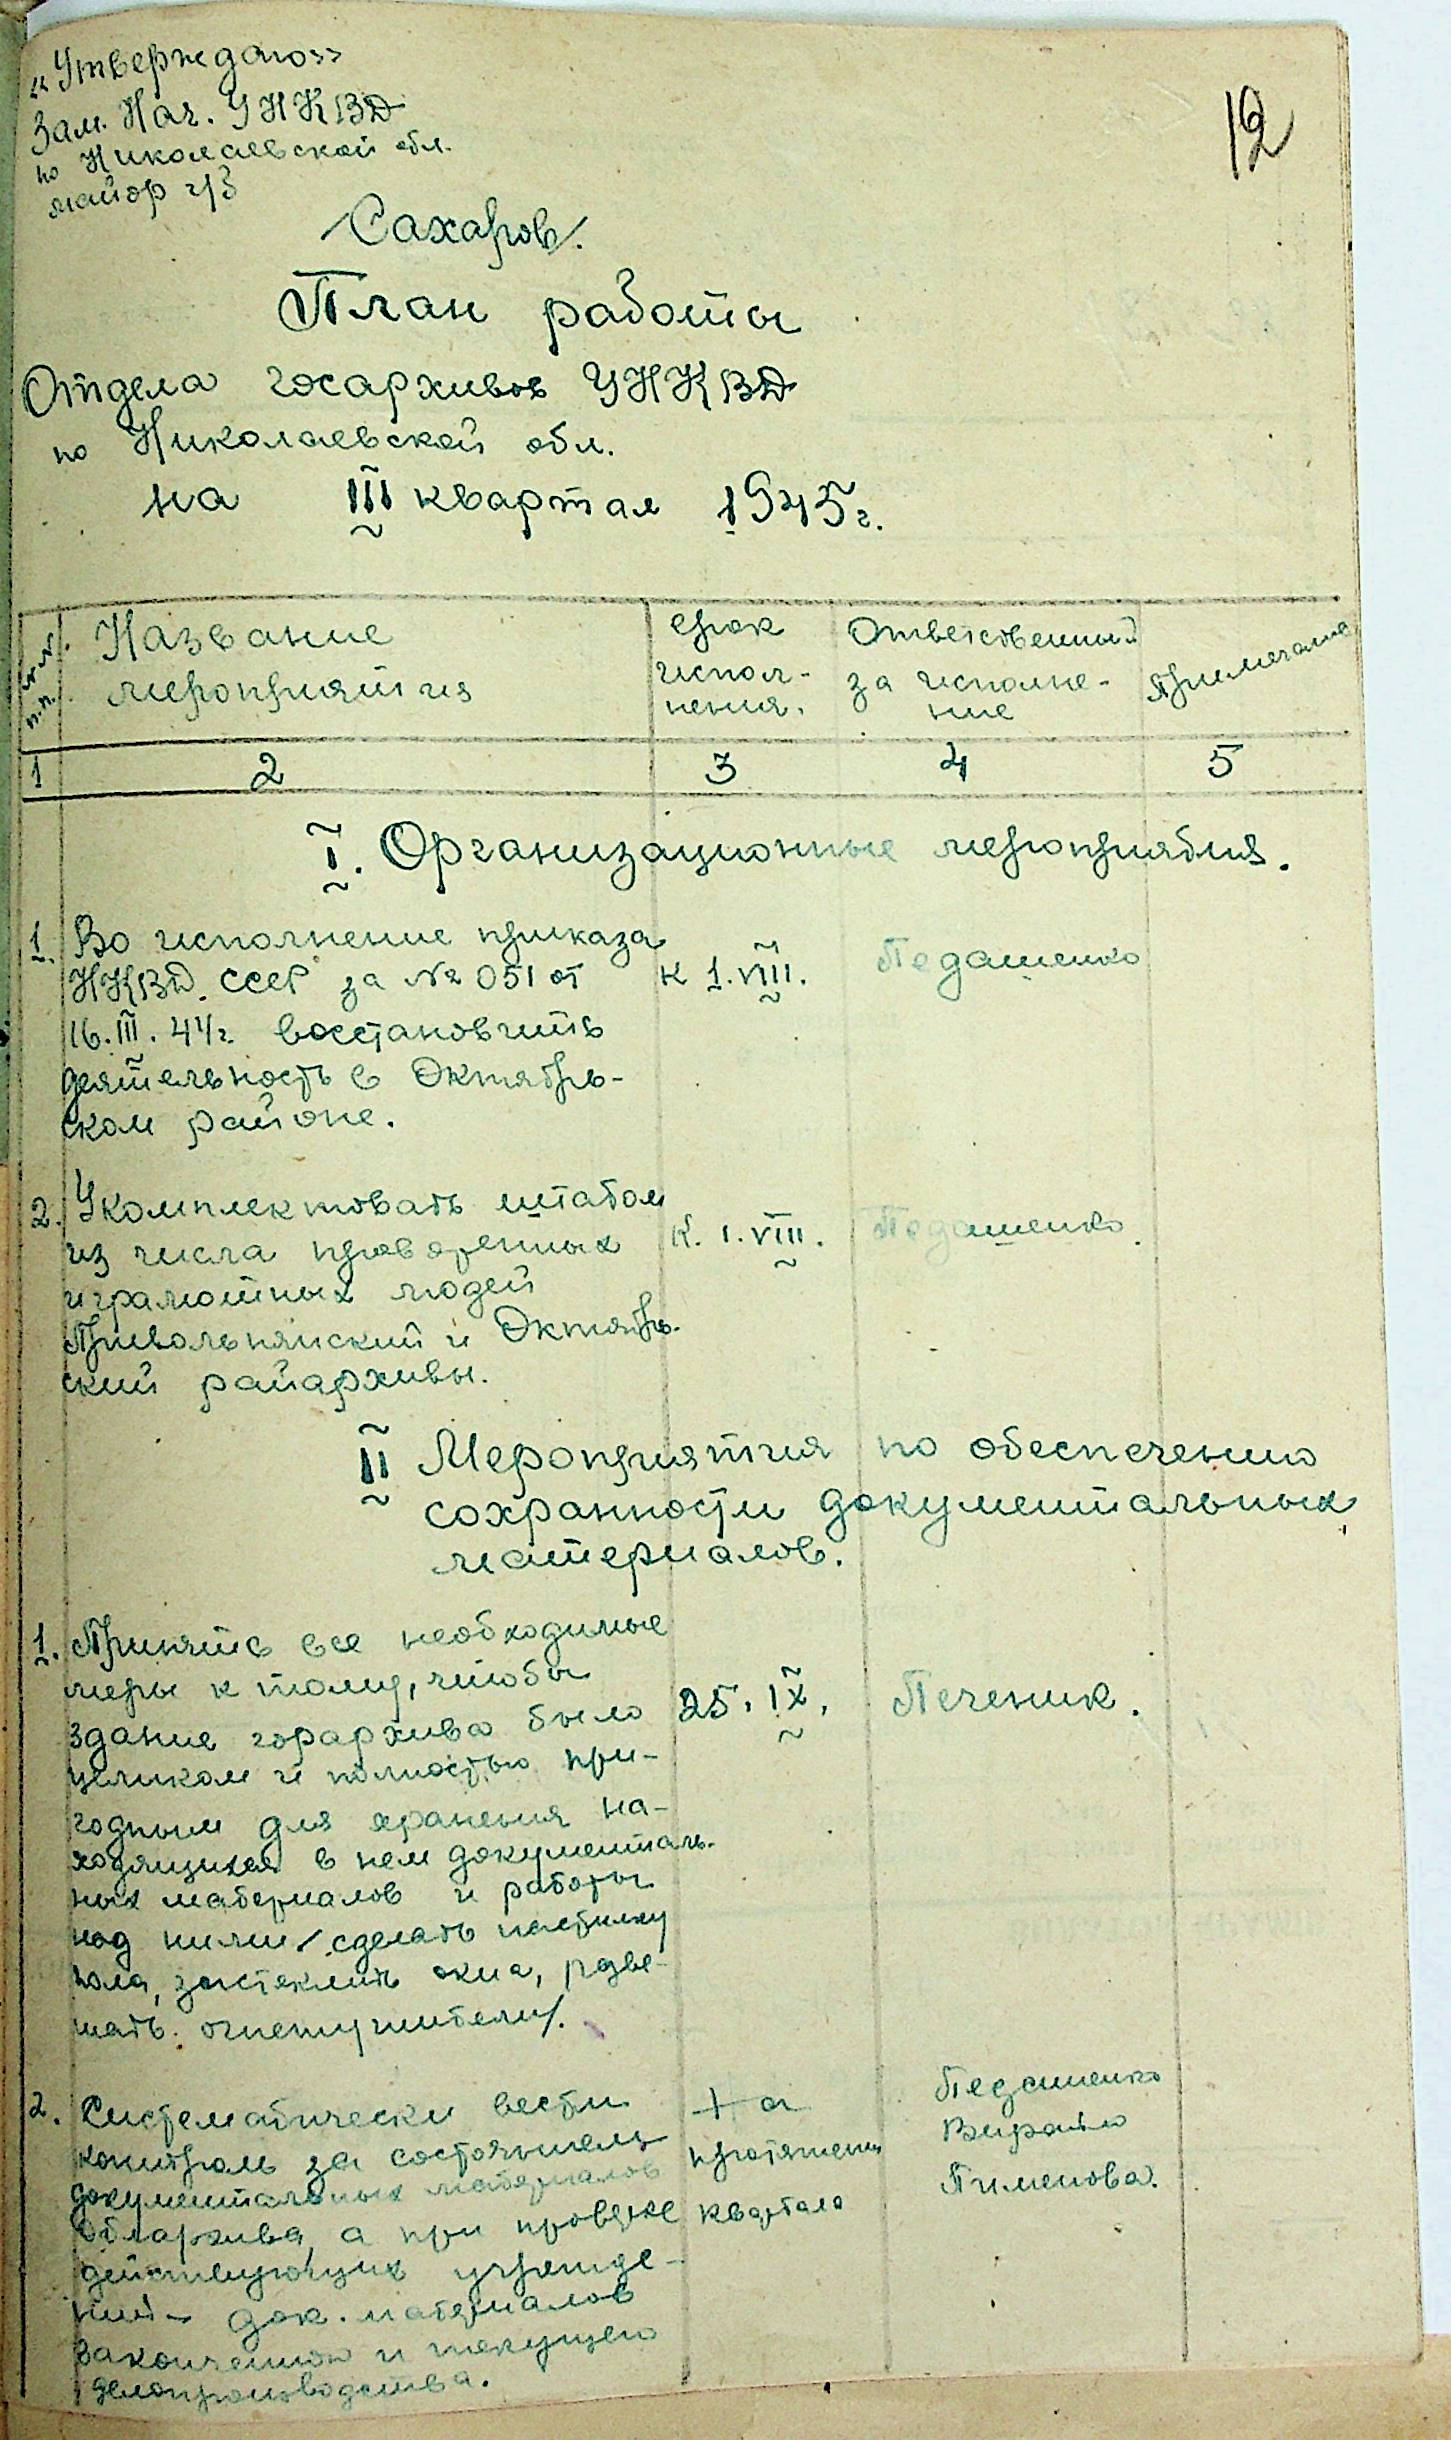 12
„Утверждаю"
Зам. Нач. УНКВД
по Николаевской обл.
майор г/б
/Сахаров/.
План работы
Отдела госархивов УНКВД
по Николаевской обл.
на III квартал 1945г.
№№ п.п. Название мероприятия
Срок исполнения.
Ответственный за исполнение
Примечание
1 2 3 4 5
I. Организационные мероприятия.
1. Во исполнение приказа
НКВД СССР за № 051 от
16.III.44г. восстановить
деятельность в Октябрь-
ском районе.
к 1.VIII.
Педашенко
2. Укомплектовать штатом
из числа проверенных
и грамотных людей
Привольнянский и Октябрь-
ский райархивы.
К. 1.VIII.
Педашенко.
II Мероприятия по обеспечению
сохранности документальных
материалов.
1. Принять все необходимые
меры к тому, чтобы
здание горархива было
целиком и полностью при-
годным для хранения на-
ходящихся в нем документаль-
ных материалов и работы
над ними /сделать настилку
пола, застеклить окна, разве-
шать огнетушители/.
25.IX.
Печеник.
2. Систематически вести
контроль за состоянием
документальных материалов
Облархива, а при проверке
действующих учрежде-
ний – док. материалов
законченного и текущего
делопроизводства.
На
протяжении
квартала
Педашенко
Пименова.